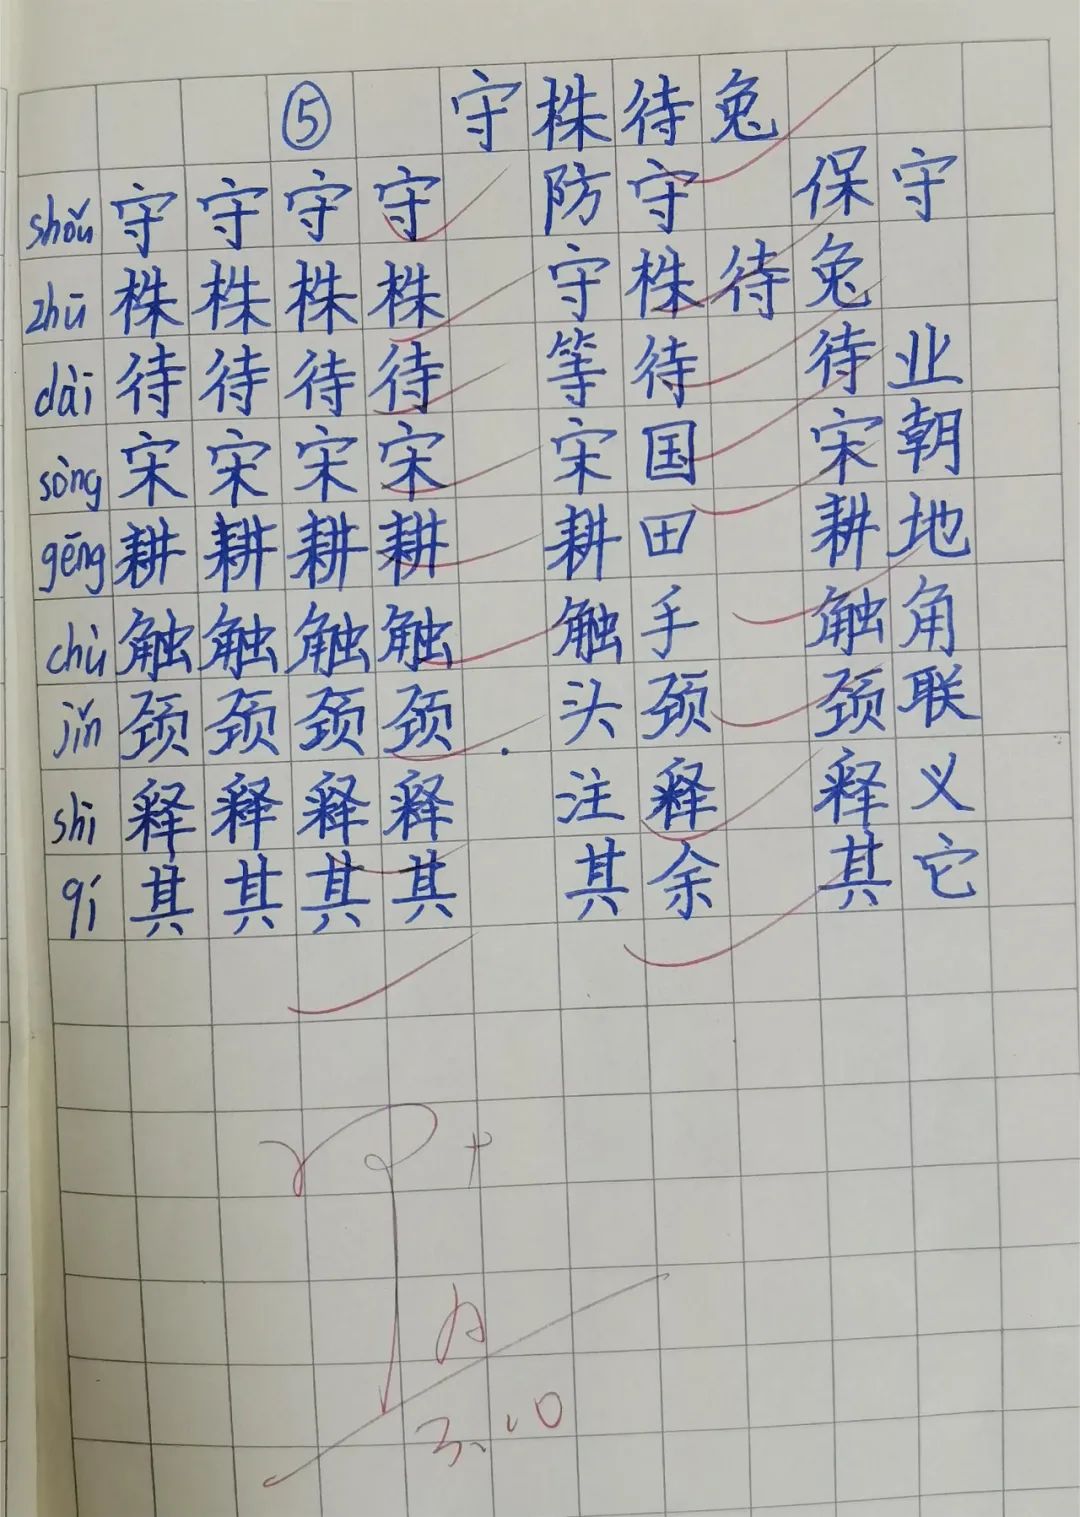 ⑤ 守株待兔
shǒu 守 守 守 守 防守 保守
zhū 株 株 株 株 守株待兔
dài 待 待 待 待 等待 待业
sòng 宋 宋 宋 宋 宋国 宋朝
gēng 耕 耕 耕 耕 耕田 耕地
chù 触 触 触 触 触手 触角
jǐn 颈 颈 颈 颈 . 头颈 颈联
shì 释 释 释 释 注释 释义
qí 其 其 其 其 其余 其它
3.10